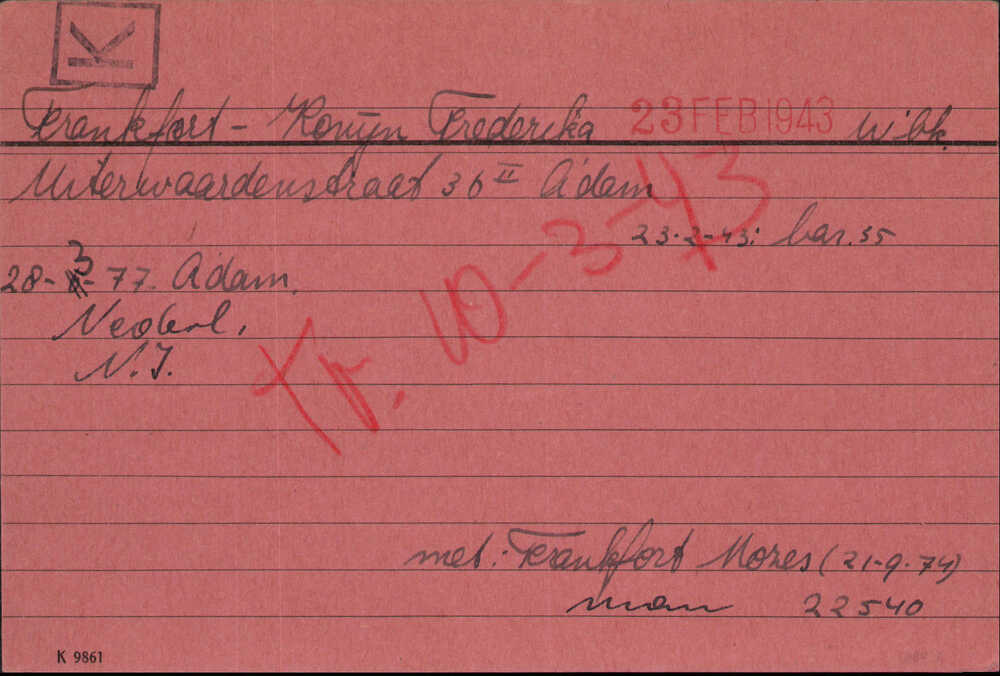 K
Frankfort - Konijn Frederika 23 FEB 1943 Wbk.
Uiterwaardenstraat 36 II A'dam
23-2-43: bar. 55
28-3-77. A'dam.
Nederl.
N.I.
Tr. 10-3-43
met: Frankfort Mozes (21-9-74)
man 22540
K 9861